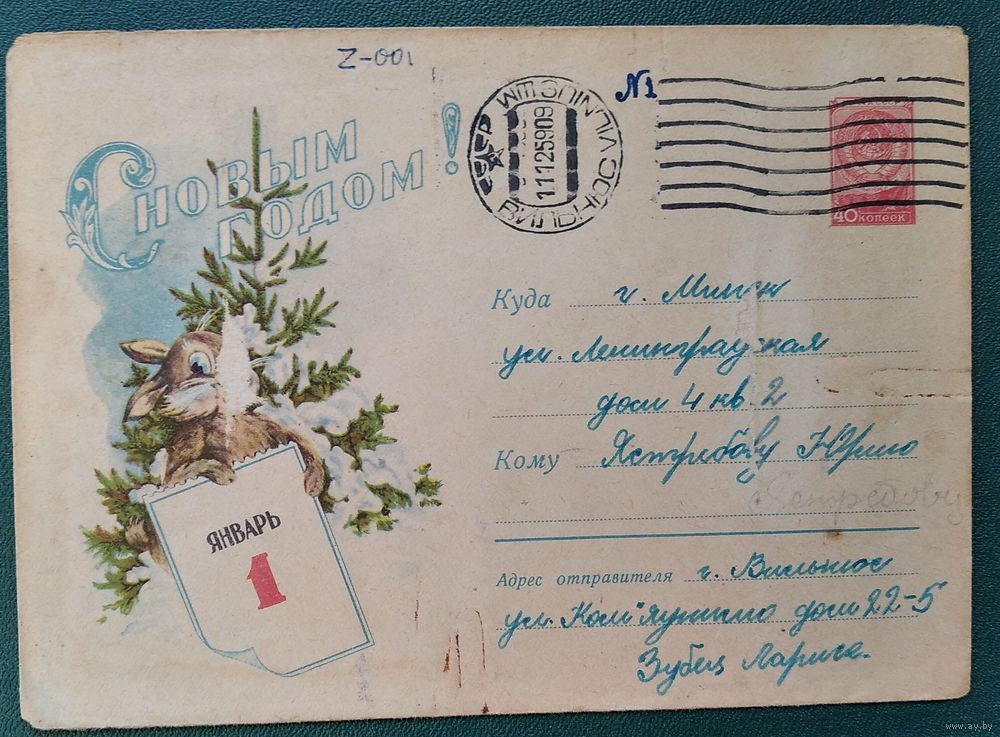 Z-001
С НОВЫМ
ГОДОМ!
СССР
VILNIUS
ВИЛЬНЮС
11125909
N1
40 КОПЕЕК
Куда г. Минск
ул. Ленинградская
дом 4 кв. 2
Кому Ястребову Юрию
Ястребову
Адрес отправителя г. Вильнюс
ул. дом 22-5
Зубец Лариса.
ЯНВАРЬ
1
www.ay.by